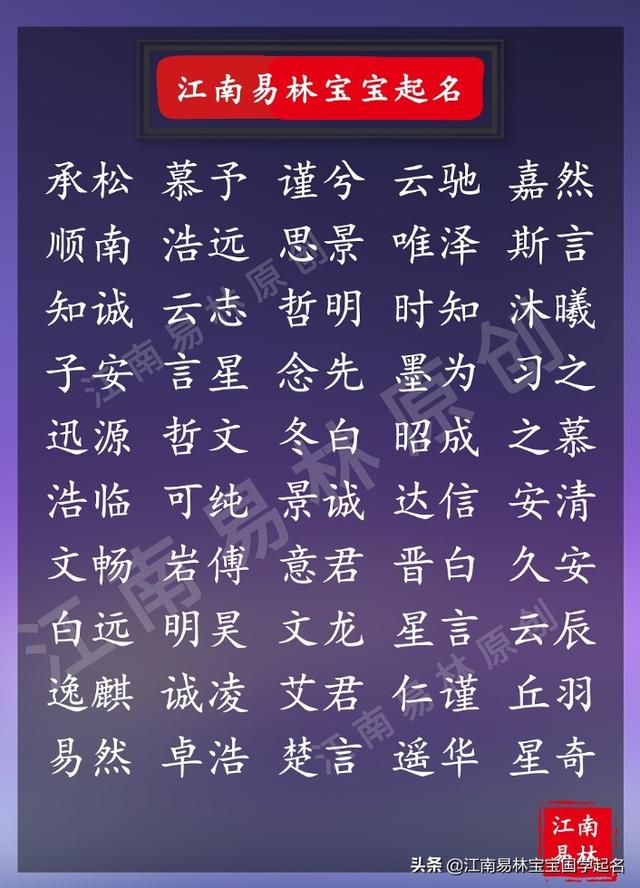 江南易林宝宝起名
承松 慕予 谨兮 云驰 嘉然
顺南 浩远 思景 唯泽 斯言
知诚 云志 哲明 时知 沐曦
子安 言星 念先 墨为 习之
迅源 哲文 冬白 昭成 之慕
浩临 可纯 景诚 达信 安清
文畅 岩傅 意君 晋白 久安
白远 明昊 文龙 星言 云辰
逸麒 诚凌 艾君 仁谨 丘羽
易然 卓浩 楚言 遥华 星奇
江南易林原创
江南易林原创
江南易林原创
江南
易林
头条 @江南易林宝宝国学起名